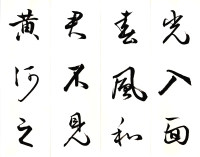 光入面
春風和
君不見
黃河之